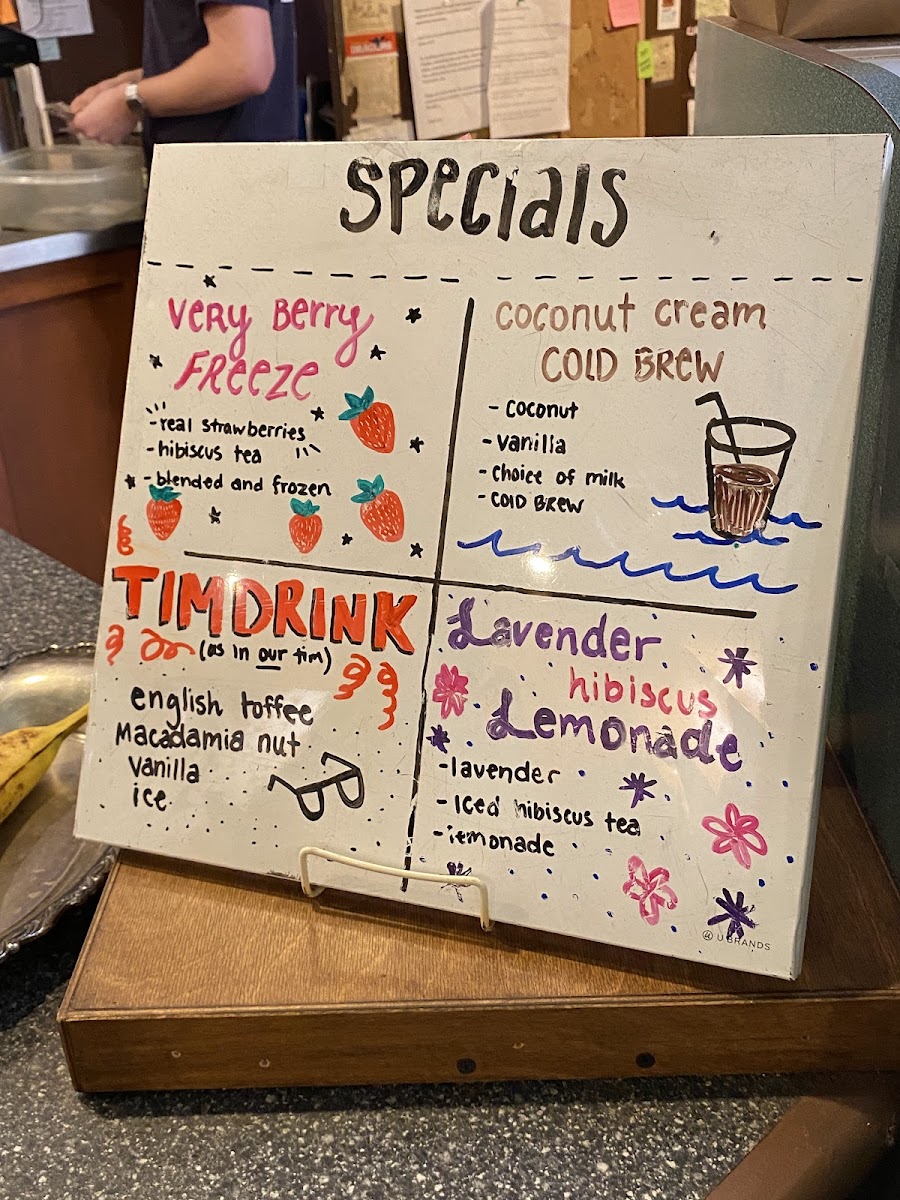 Specials
Very Berry
Freeze
-real strawberries
-hibiscus tea
-blended and frozen
coconut cream
COLD BREW
- coconut
- vanilla
- choice of milk
- COLD BREW
TIMDRINK
(as in our tim)
english toffee
Macadamia nut
vanilla
ice
Lavender
hibiscus
Lemonade
-lavender
- Iced hibiscus tea
-lemonade
U BRANDS